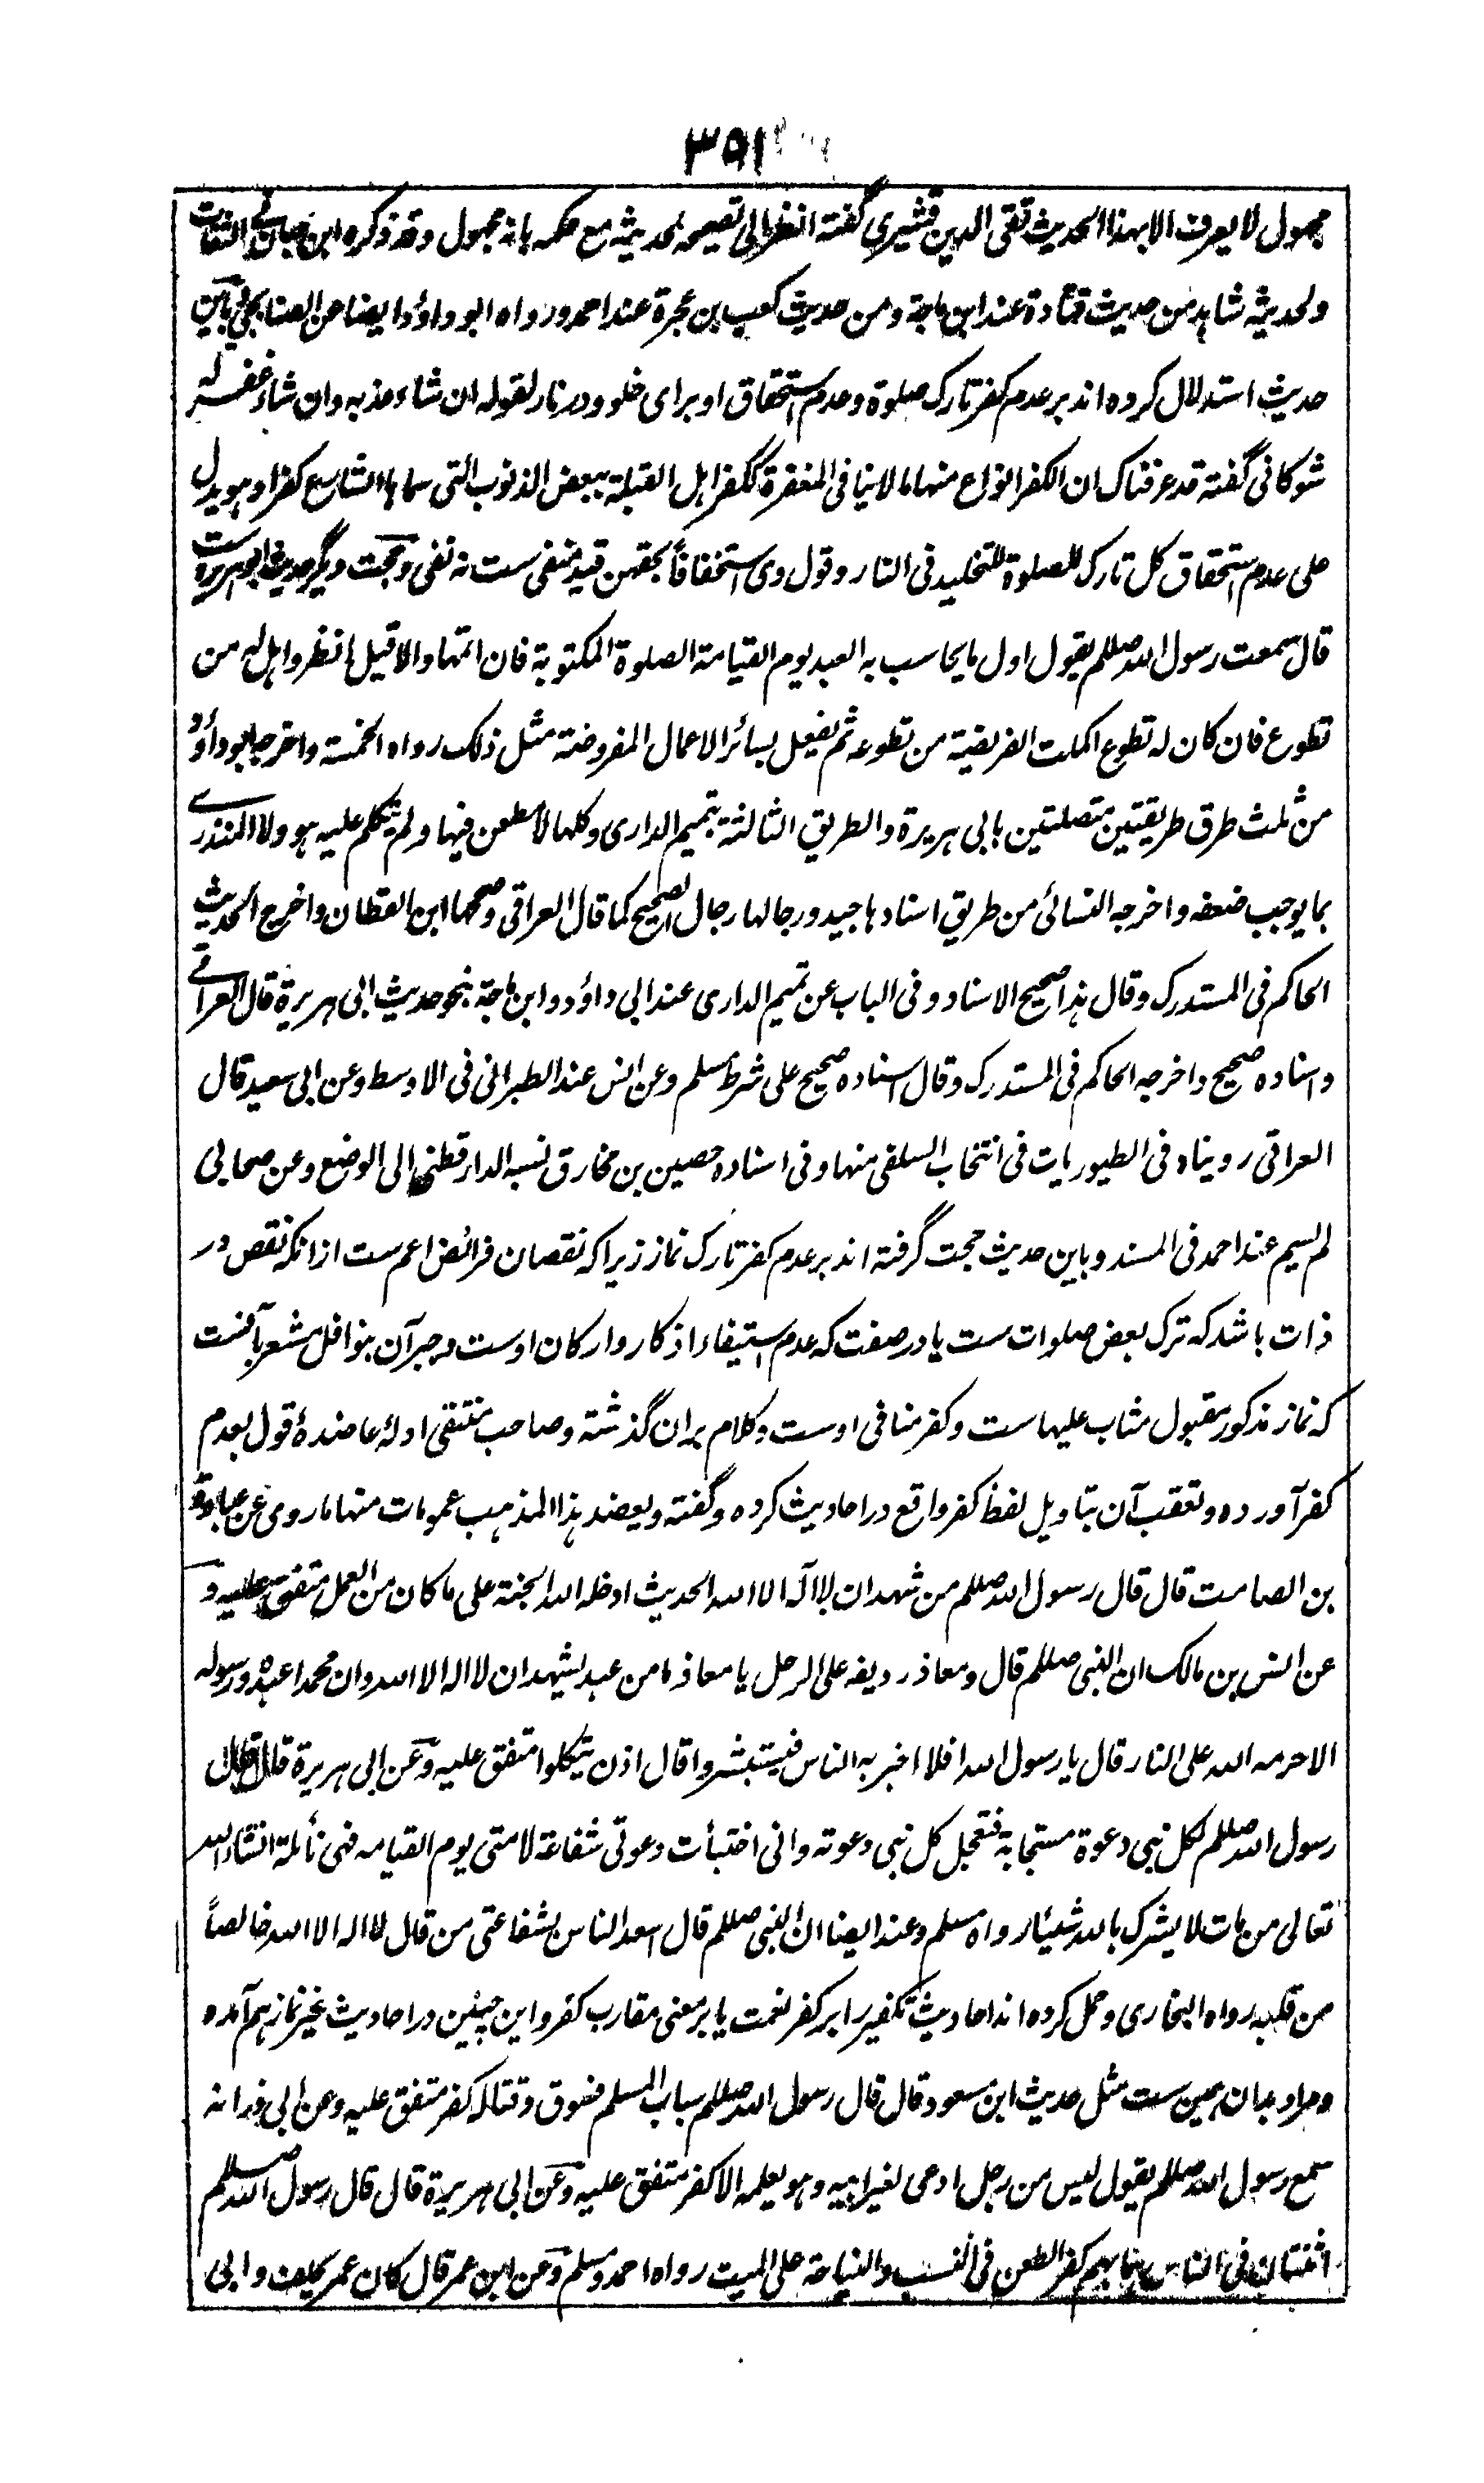 ۳۵۱
مجهول لا يعرف الا بهذا الحديث تقى الدين قشيرى گفته انظر الى تصحيحه لحديثه مع حكمه بانه مجهول وقد ذكره ابن حبان فى الثقات
ولحديثه شاهد من حديث قتادة عند ابن ماجة ومن حديث كعب بن عجرة عند احمد ورواه ابو داؤد ايضا عن الصنابحى باين
حديث استدلال كرده اند بر عدم كفر تارك صلوة وعدم استحقاق او براى خلود در نار لقوله ان شاء عذبه وان شاء غفر له
شوكانى گفته قد عرفناك ان الكفر انواع منها ما لا ينافى المغفرة ككفر اهل القبلة ببعض الذنوب التى سماها الشارع كفرا وهو يدل
على عدم استحقاق كل تارك للصلوة للتخليد فى النار وقول وى استخفافاً بحقهن قيد منفى ست نه نفى وحجت ديگر حديث ابو هريره ست
قال سمعت رسول الله صللم يقول اول ما يحاسب به العبد يوم القيامة الصلوة المكتوبة فان اتمها والا قيل انظروا هل له من
تطوع فان كان له تطوع اكملت الفريضة من تطوعه ثم يفعل بسائر الاعمال المفروضة مثل ذلك رواه الخمسة واخرجه ابو داؤد
من ثلث طرق طريقتين متصلتين بابى هريرة والطريق الثالثة بتميم الدارى وكلها لا مطعن فيها ولم يتكلم عليه هو ولا المنذرى
بما يوجب ضعفه واخرجه النسائى من طريق اسنادها جيد ورجالها رجال الصحيح كما قال العراقى وصححها ابن القطان واخرج الحديث
الحاكم فى المستدرك وقال هذا صحيح الاسناد وفى الباب عن تميم الدارى عند ابى داؤد وابن ماجة بنحو حديث ابى هريرة قال العراقى
واسناده صحيح واخرجه الحاكم فى المستدرك وقال اسناده صحيح على شرط مسلم وعن انس عند الطبرانى فى الاوسط وعن ابى سعيد قال
العراقى رويناه فى الطيوريات فى انتخاب السلفى منها وفى اسناده حصين بن مخارق نسبه الدارقطنى الى الوضع وعن صحابى
لم يسم عند احمد فى المسند وباين حديث حجت گرفته اند بر عدم كفر تارك نماز زيرا كه نقصان فرائض اعم ست ازانكه نقص در
ذات باشد كه ترك بعض صلوات ست يا در صفت كه عدم استيفاء اذكار واركان اوست وجبر آن بنوافل مشعر بآنست
كه نماز مذكور مقبول مثاب عليهاست وكفر منافى اوست وكلام بران گذشته وصاحب منتقى ادلهٔ عاضدهٔ قول بعدم
كفر آورده وتعقب آن بتاويل لفظ كفر واقع در احاديث كرده وگفته ويعضد هذا المذهب عمومات منها ما روى عن عبادة
بن الصامت قال قال رسول الله صللم من شهد ان لا اله الا الله الحديث ادخله الله الجنة على ما كان من العمل متفق عليه و
عن انس بن مالك ان النبى صللم قال ومعاذ رديفه على الرحل يا معاذ ما من عبد يشهد ان لا اله الا الله وان محمدا عبده ورسوله
الا حرمه الله على النار قال يا رسول الله افلا اخبر به الناس فيستبشروا قال اذن يتكلوا متفق عليه وعن ابى هريرة قال قال
رسول الله صللم لكل نبى دعوة مستجابة فتعجل كل نبى دعوته وانى اختبأت دعوتى شفاعة لامتى يوم القيامه فهى نائلة انشاء الله
تعالى من مات لا يشرك بالله شيئا رواه مسلم وعنه ايضا ان النبى صللم قال اسعد الناس بشفاعتى من قال لا اله الا الله خالصاً
من قلبه رواه البخارى وحمل كرده اند احاديث تكفير را بر كفر نعمت يا بر معنى مقارب كفر واين چنين در احاديث غير نماز هم آمده
ومراد بدان همين ست مثل حديث ابن مسعود قال قال رسول الله صللم سباب المسلم فسوق وقتاله كفر متفق عليه وعن ابى ذر انه
سمع رسول الله صللم يقول ليس من رجل ادعى لغير ابيه وهو يعلمه الا كفر متفق عليه وعن ابى هريرة قال قال رسول الله صللم
اثنتان فى الناس هما بهم كفر الطعن فى النسب والنياحة على الميت رواه احمد ومسلم وعن ابن عمر قال كان عمر يحلف وابى